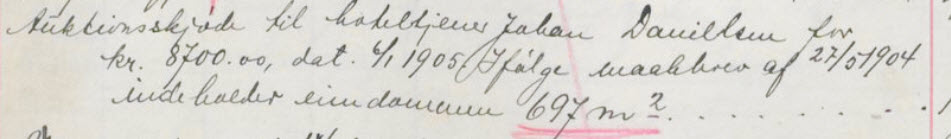 Auktionsskjøde til hoteltjener Johan Danielsen for
kr. 8700.00, dat. 6/1 1905. Ifølge maalebrev af 27/5 1904
indeholder eiendommen 697 m². . . . . . . .